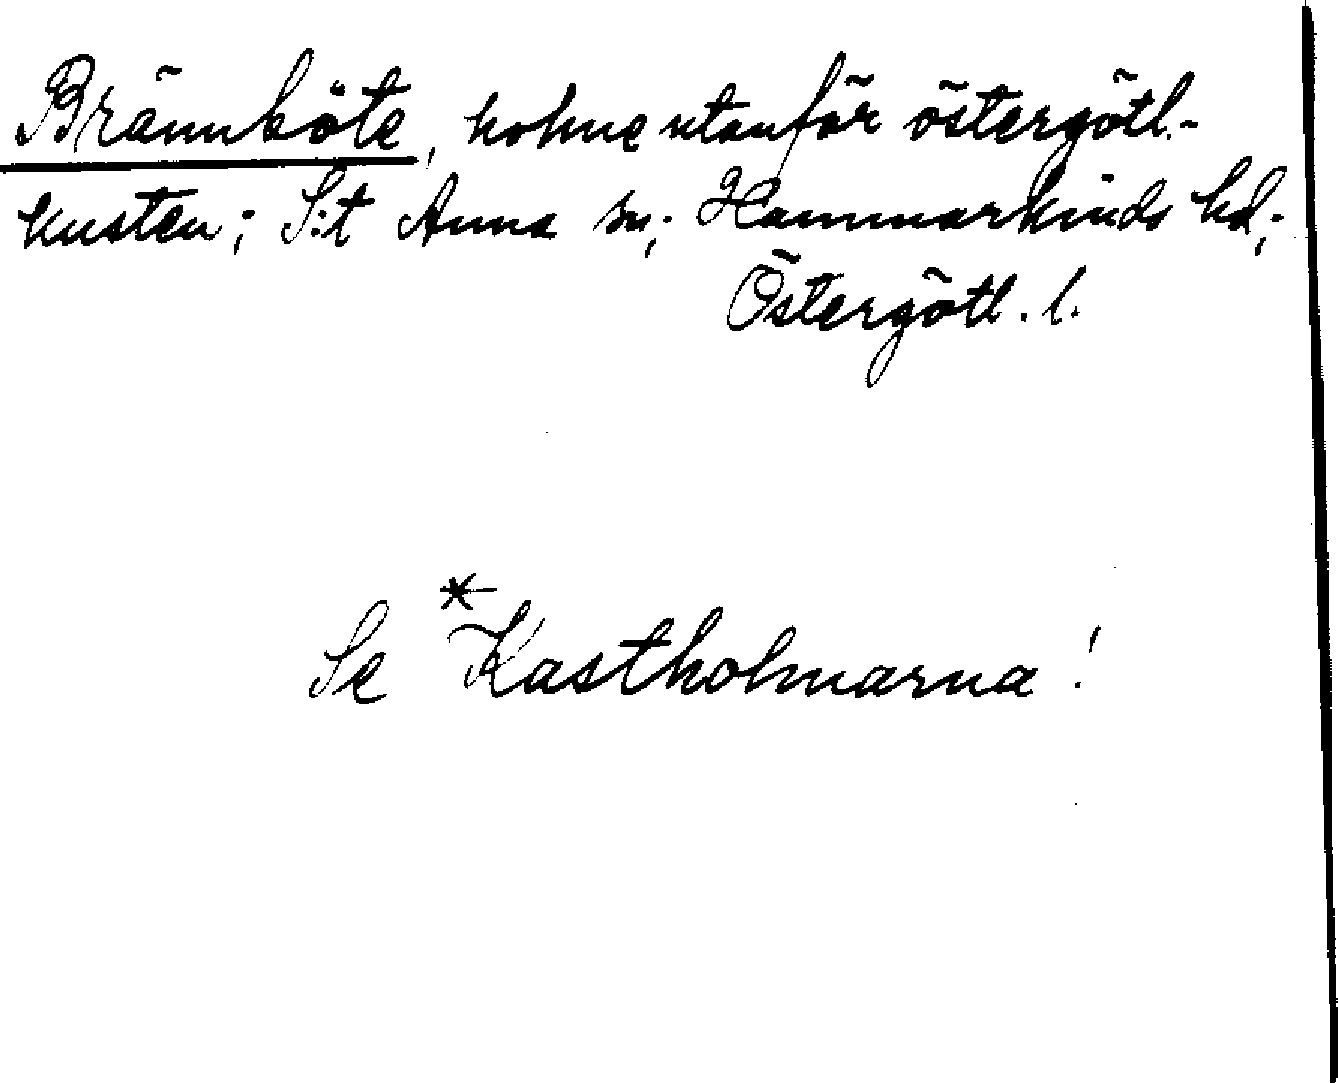 Brännböte, holme utanför östergötl.-
kusten; S:t Anna sn; Hammarkinds hd;
Östergötl. l.
Se *Kastholmarna!